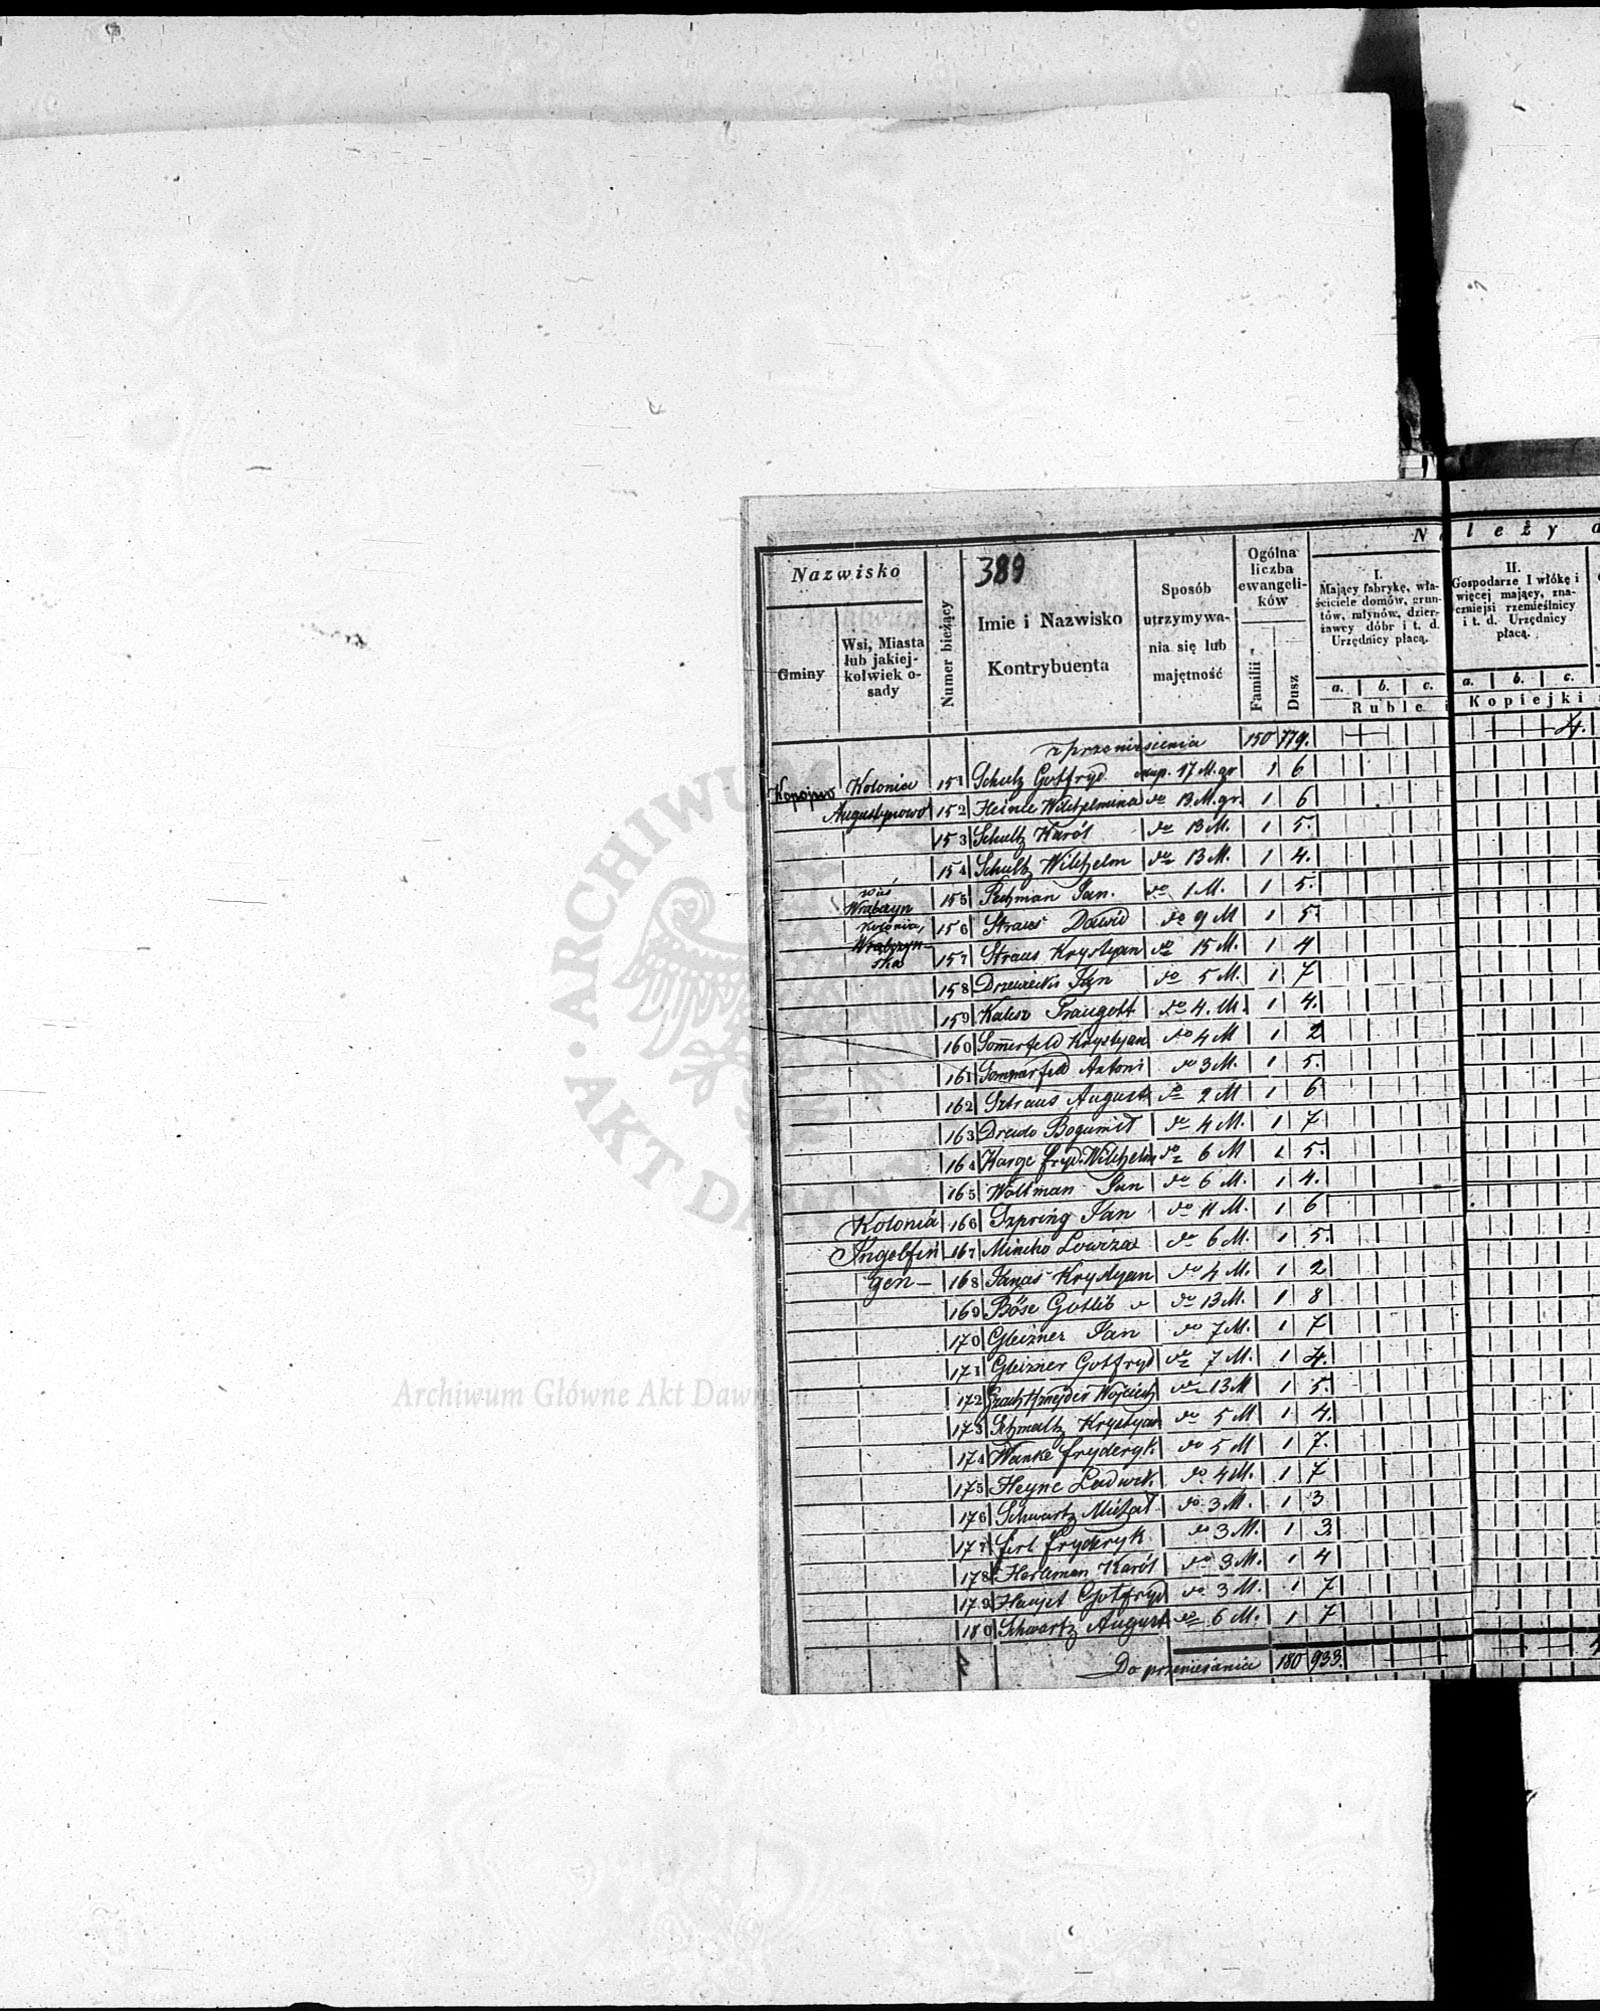 389
Należy d
Nazwisko
Gminy
Wsi, Miasta
lub jakiej-
kolwiek o-
sady
Numer bieżący
Imie i Nazwisko
Kontrybuenta
Sposób
utrzymywa-
nia się lub
majętność
Ogólna
liczba
ewangeli-
ków
Familii
Dusz
I.
Mający fabrykę, wła-
ściciele domów, grun-
tów, młynów, dzier-
żawcy dóbr i t. d.
Urzędnicy płacą.
II.
Gospodarze I włókę i
więcej mający, zna-
czniejsi rzemieślnicy
i t. d. Urzędnicy
płacą.
a. b. c. a. b. c.
Ruble i Kopiejki
z przeniesienia 150 779. 4.
Kolonia 151 Schulz Gotfryd 17 M. gr 1 6
Augustynowo 152 Heinle Wilhelmina do 13. M. gr. 1 6
153 Schultz Karól do 13 M. 1 5.
154 Schultz Wilhelm do 13 M. 1 4.
wieś
Wrąbczyn 155 Jan. do 1 M. 1 5.
Kolonia, 156 Straus Dawid do 9 M 1 5.
Wrąbczyn-
ska 157 Straus Krystyan do 15 M. 1 4
158 Drzewiecki Jan do 5 M. 1 7
159 Traugott do 4. M. 1 4.
160 Somerfeld Krystyan do 4 M 1 2
161 Antoni do 3 M. 1 5.
162 Sztraus August do 2 M 1 6
163 Bogumił do 4 M. 1 7
164 Karge Fryd. Wilhelm do 6 M 1 5.
165 Woltman Jan do 6 M. 1 4.
Kolonia 166 Szpring Jan do 11 M. 1 6
167 do 6 M. 1 5.
gen- 168 Janas Krystyan do 4 M. 1 2
169 Böse Gotlib do 13 M. 1 8
170 Gleizner Jan do 7 M. 1 7
171 Gleizner Gotfryd do 7 M. 1 4.
172 Wojciech do 13 M 1 5.
173 Schmaltz Krystyan do 5 M 1 4.
174 Wanke Fryderyk. do 5 M 1 7.
175 Heyne Ludwik. do 4 M. 1 7
176 Schwartz Michał do 3 M. 1 3
177 Ferl Fryderyk do 3 M. 1 3
178 Karól do 3 M. 1 4
179 Gotfryd do 3 M. 1 7
180 Schwartz August do 6 M. 1 7
Do przeniesienia 180 933.
ARCHIWUM
AKT DAWNYCH
Archiwum Główne Akt Dawnych